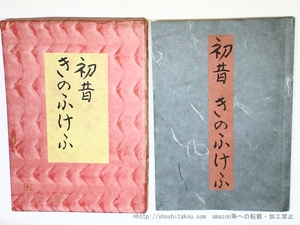 初昔
きのふけふ
初昔 きのふけふ
©http://shoshitakou.com amazon等への転載・加工禁止